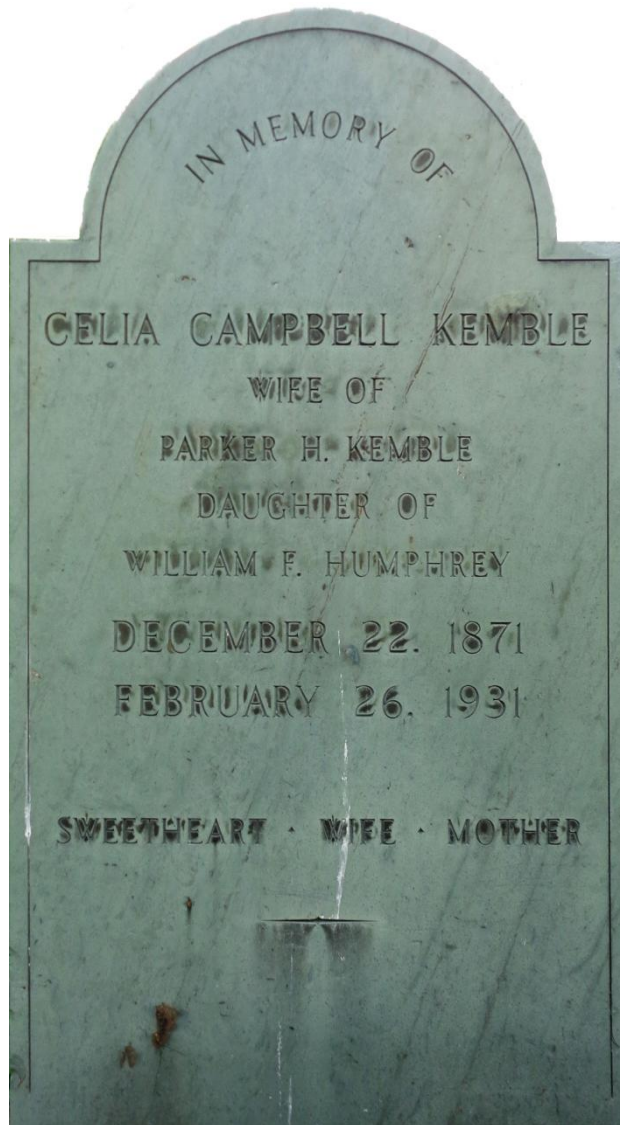 IN MEMORY OF
CELIA CAMPBELL KEMBLE
WIFE OF
PARKER H. KEMBLE
DAUGHTER OF
WILLIAM F. HUMPHREY
DECEMBER 22. 1871
FEBRUARY 26. 1931
SWEETHEART · WIFE · MOTHER